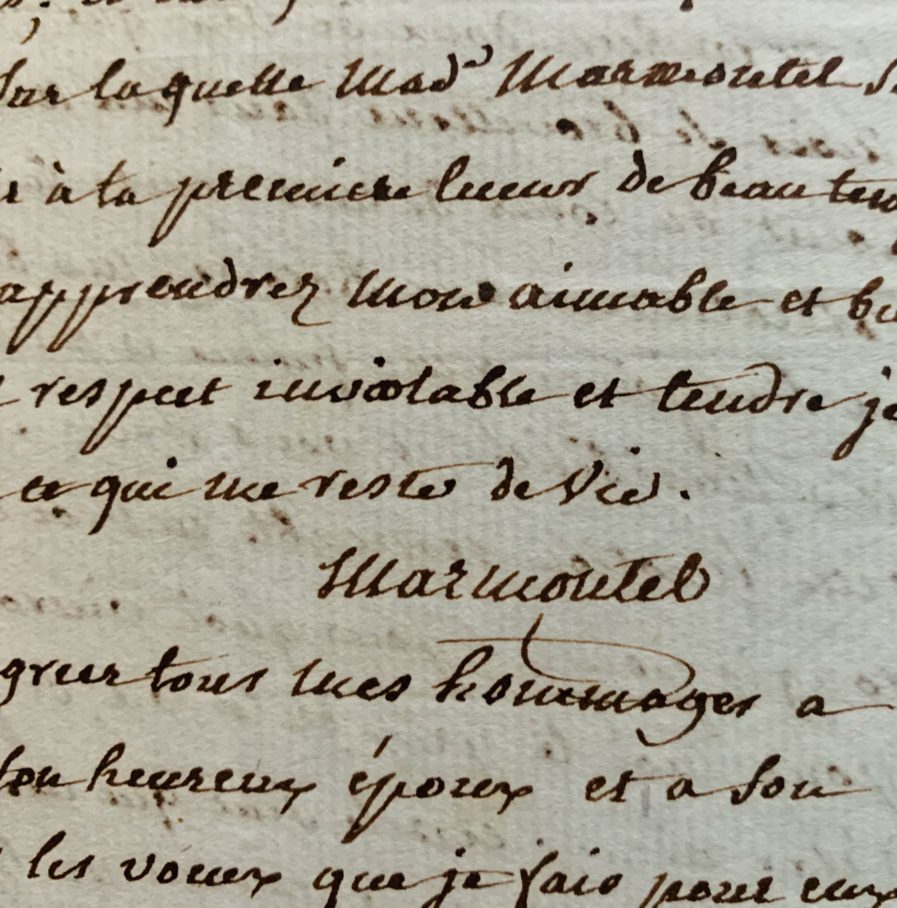 sur laquelle Mad^e Marmontel
à la premiere lueur de beau
apprendrez mon aimable et
respect inviolable et tendre je
ce qui me reste de vie.
Marmontel
tous mes hommages a
son heureux époux et a son
les voeux que je fais pour eux